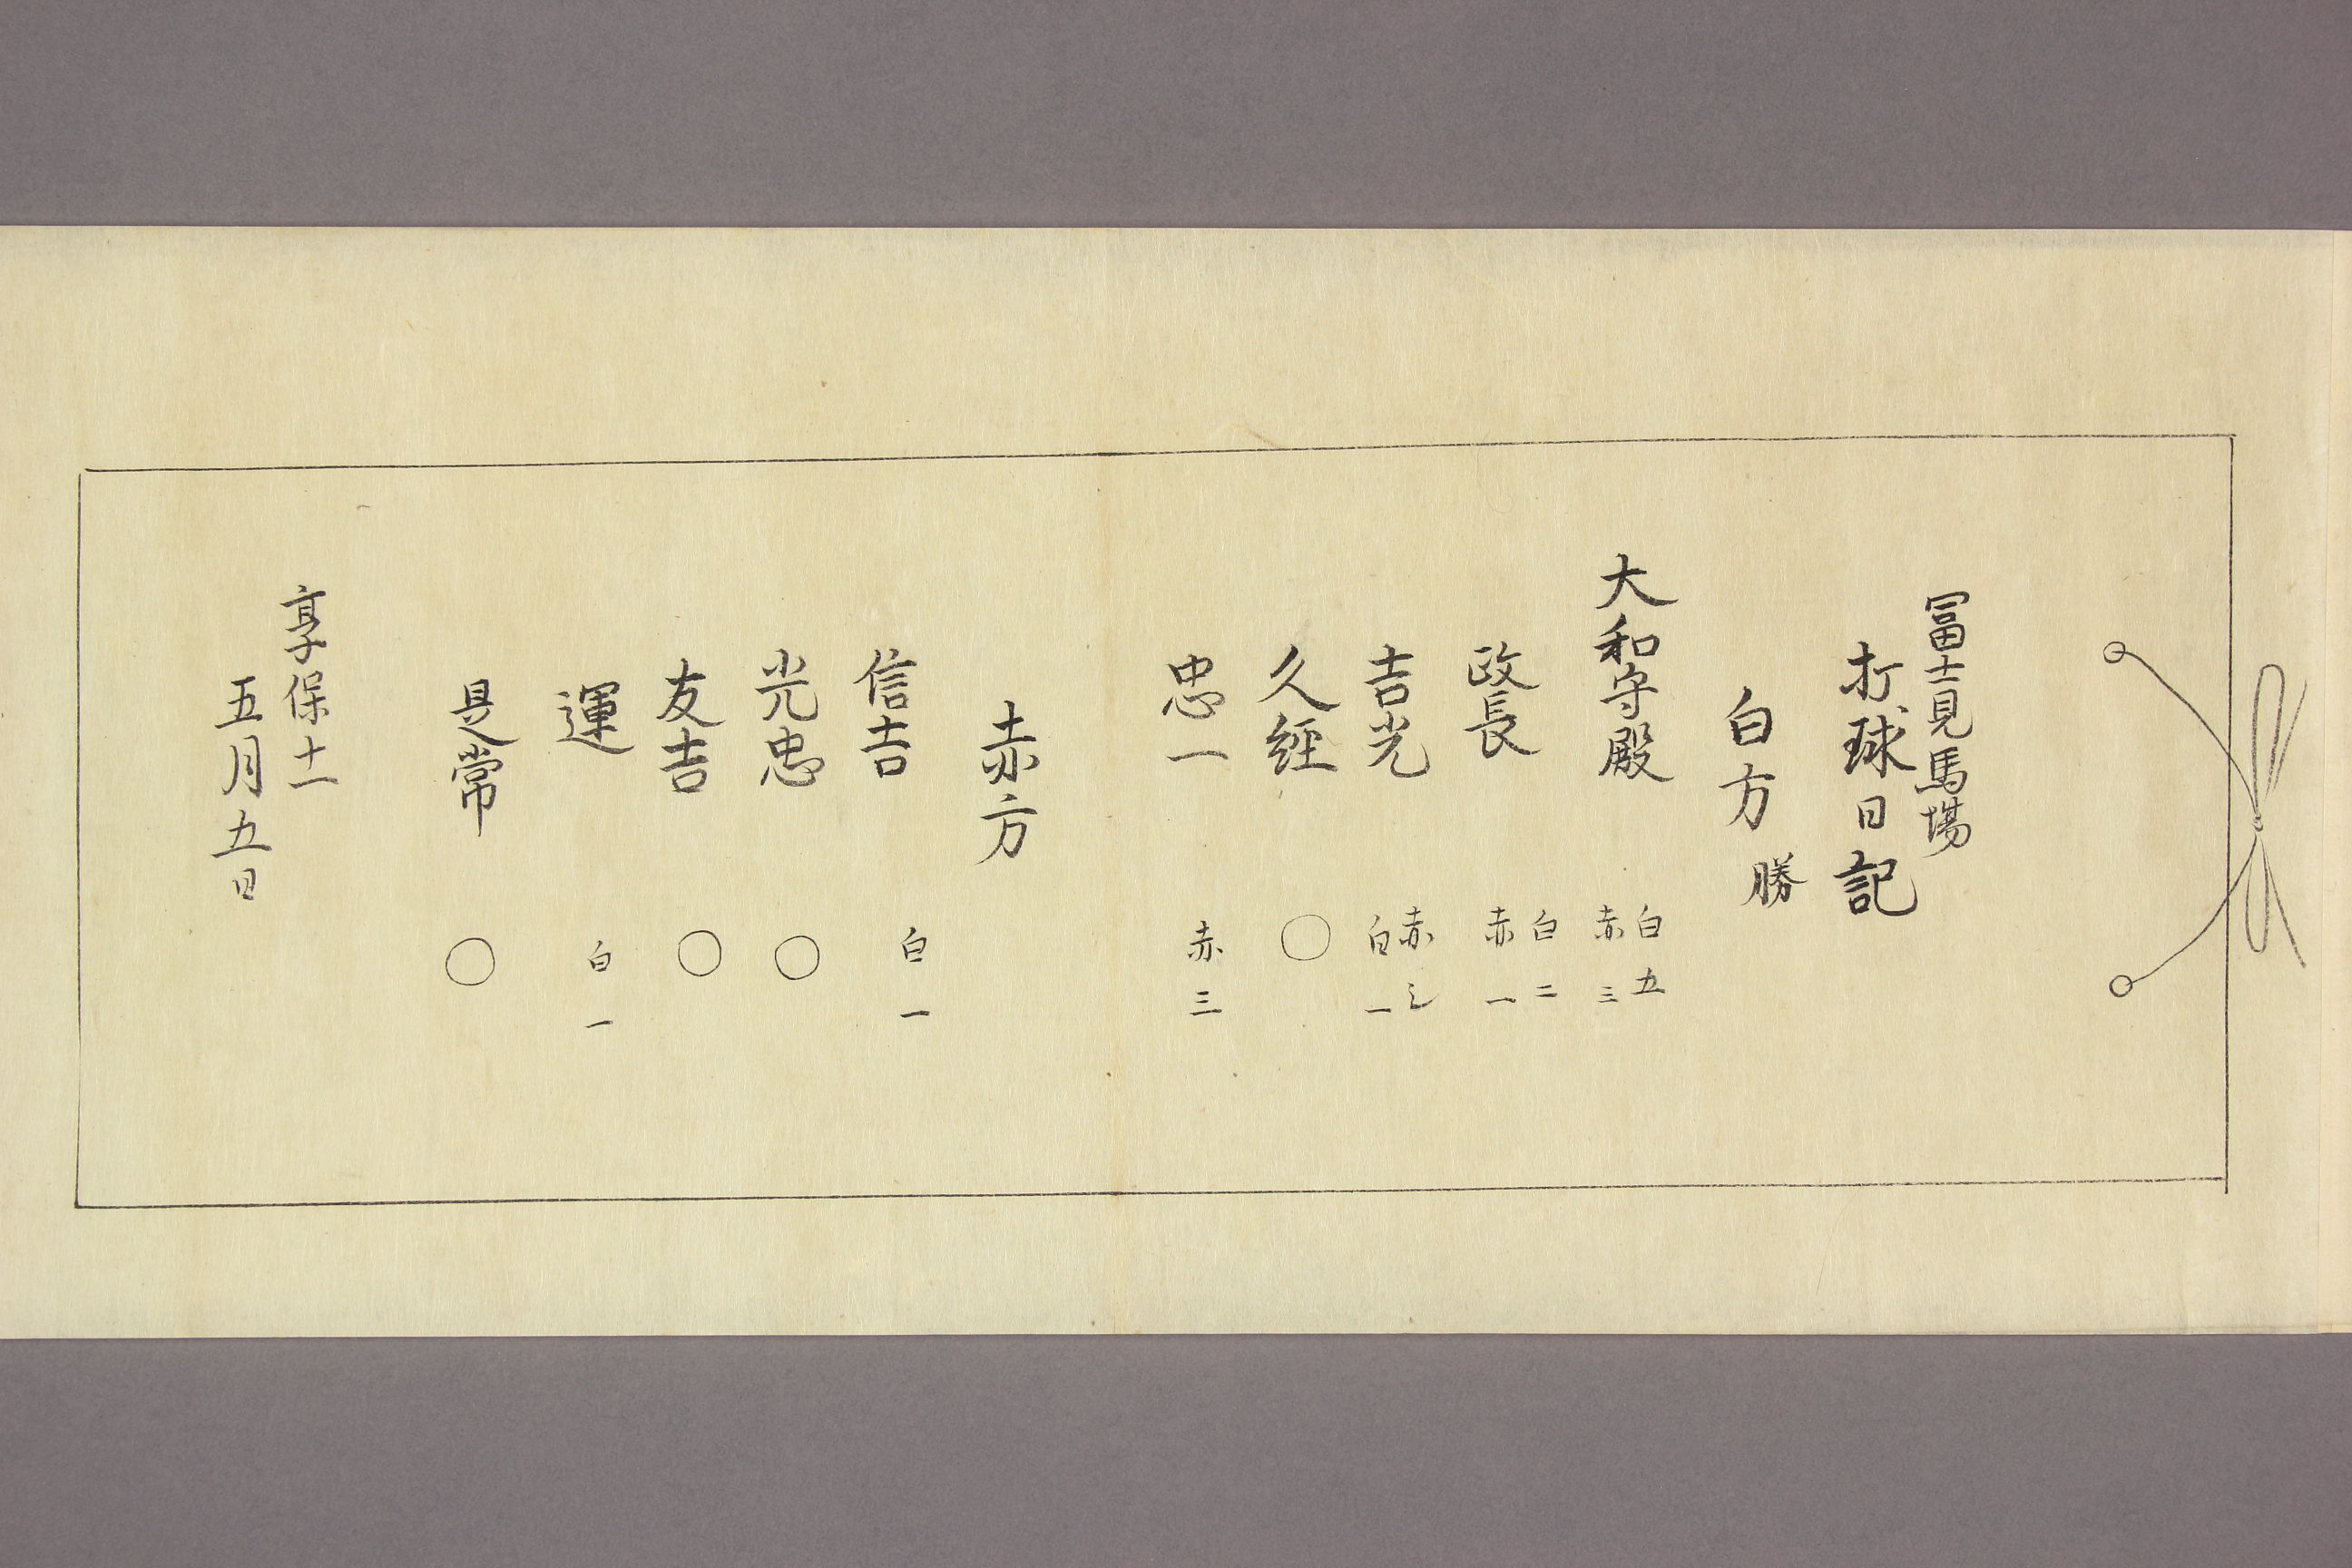 冨士見馬場
打球日記
白方　勝
大和守殿　白五　赤三
政長　白二　赤一
吉光　赤　白一
久経　○
忠一　赤三
赤方
信吉　白一
光忠　○
友吉　○
運　白一
是常　○
享保十一
五月五日